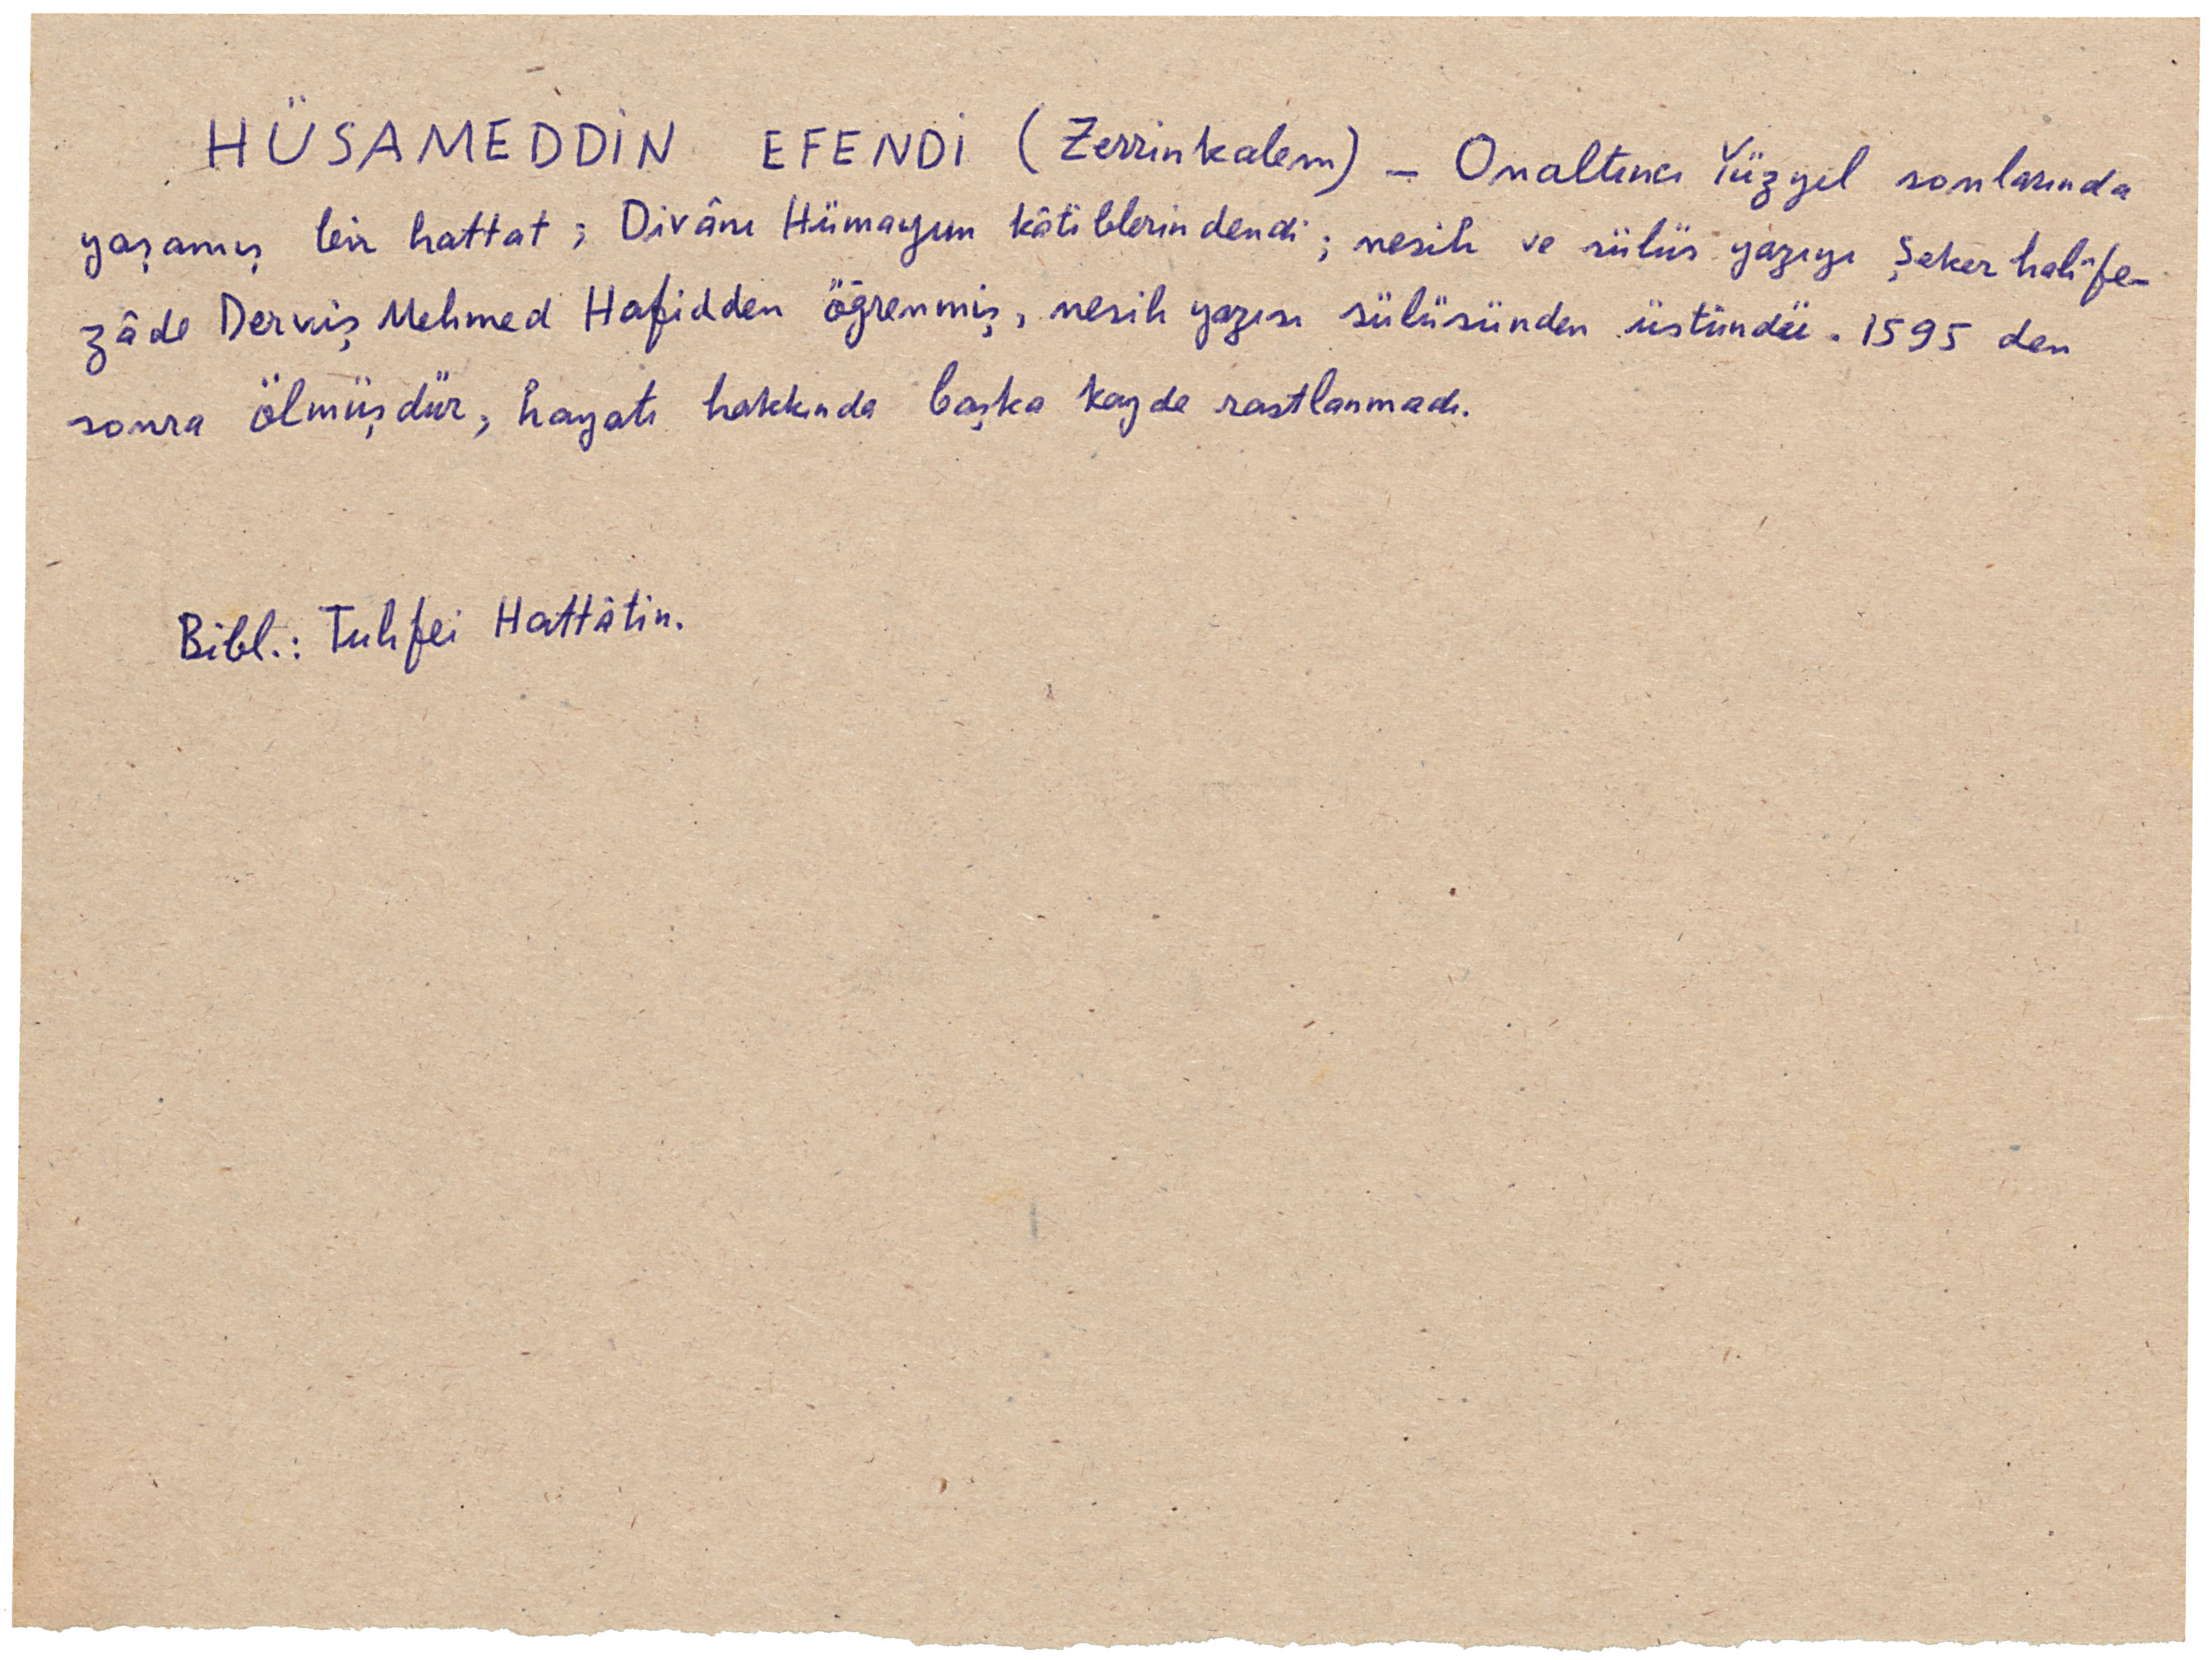 HÜSAMEDDİN EFENDİ (Zerrinkalem) – Onaltıncı Yüzyıl sonlarında
yaşamış bir hattat; Divânı Hümayun kâtiblerindendi; nesih ve sülüs yazıyı Şeker halîfe-
zâde Derviş Mehmed Hafidden öğrenmiş, nesih yazısı sülüsünden üstündü. 1595 den
sonra ölmüşdür, hayatı hakkında başka kayde rastlanmadı.
Bibl.: Tuhfei Hattâtin.